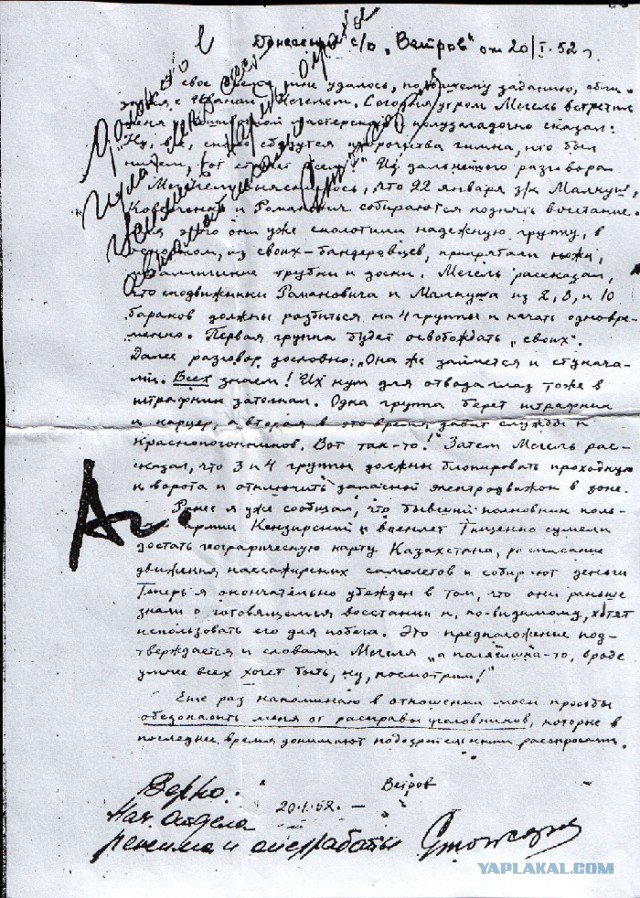 Донесение с/о „Ветров" от 20/I.52 г.
свое время мне удалось, по вашему заданию, сбли-
зиться с Иваном Мегелем. Сегодня утром Мегель встретил
меня мастерской и полузагадочно сказал:
"Ну, все, скоро сбудутся пророчества гимна, кто был
ничем, тот станет всем!" Из дальнейшего разговора
с Мегелем выяснилось, что 22 января з/к Малкуш,
Коверченко и Романович собираются поднять восстание.
Для этого они уже сколотили надежную группу, в
основном, из своих-бандеровцев, припрятали ножи,
металлические трубки и доски. Мегель рассказал,
что сподвижники Романовича и Малкуша из 2, 8, и 10
бараков должны разбиться на 4 группы и начать одновре-
менно. Первая группа будет освобождать „своих".
Далее разговор дословно: „Она же займется и стукача-
ми. Всех знаем! Их кум для отвода глаз тоже в
штрафник затолкал. Одна группа берет штрафник
и карцер, а вторая в это время давит службы и
краснопогонников. Вот так-то!" Затем Мегель рас-
сказал, что 3 и 4 группы должны блокировать проходную
и ворота и отключить запасной электродвижок в зоне.
Ранее я уже сообщал, что бывший полковник поль.
армии Кензирский и военлет Тищенко сумели
достать географическую карту Казахстана, расписание
движения пассажирских самолетов и собирают деньги
Теперь я окончательно убежден в том, что они раньше
знали о готовящемся восстании и, по-видимому, хотят
использовать его для побега. Это предположение под-
тверждается и словами Мегеля „а полячишка-то, вроде
умнее всех хочет быть, ну, посмотрим!"
Еще раз напоминаю в отношении моей просьбы
обезопасить меня от расправы уголовников, которые в
последнее время донимают подозрительными расспросами.
Ветров
20.1.52.
Верно:
Нач. отдела
режима и оперработы
YAPLAKAL.COM